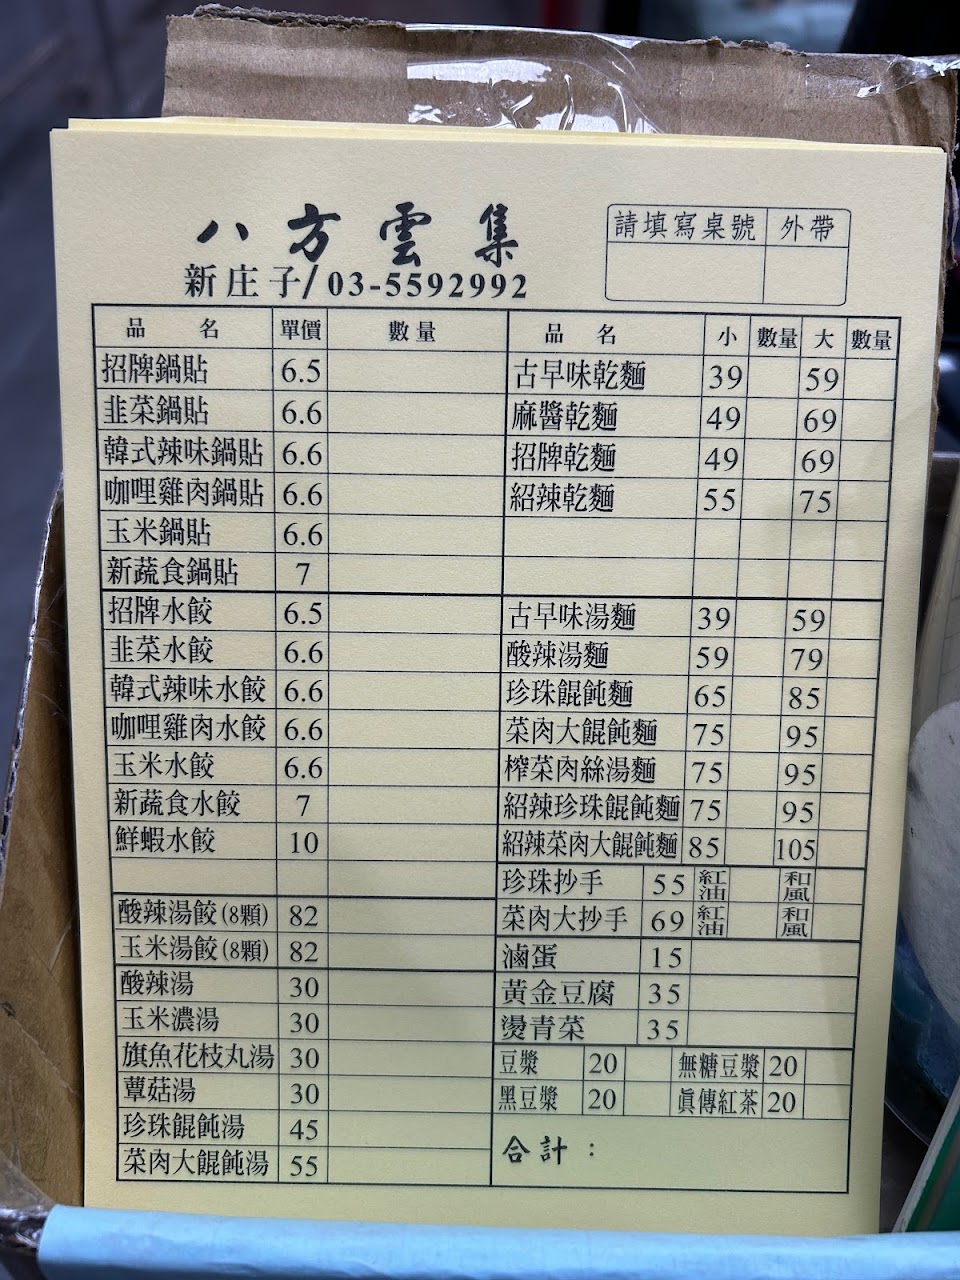 八方雲集
新庄子/03-5592992
請填寫桌號 外帶
品名 單價 數量
招牌鍋貼 6.5
韭菜鍋貼 6.6
韓式辣味鍋貼 6.6
咖哩雞肉鍋貼 6.6
玉米鍋貼 6.6
新蔬食鍋貼 7
招牌水餃 6.5
韭菜水餃 6.6
韓式辣味水餃 6.6
咖哩雞肉水餃 6.6
玉米水餃 6.6
新蔬食水餃 7
鮮蝦水餃 10
酸辣湯餃(8顆) 82
玉米湯餃(8顆) 82
酸辣湯 30
玉米濃湯 30
旗魚花枝丸湯 30
蕈菇湯 30
珍珠餛飩湯 45
菜肉大餛飩湯 55
品名 小 數量 大 數量
古早味乾麵 39 59
麻醬乾麵 49 69
招牌乾麵 49 69
紹辣乾麵 55 75
古早味湯麵 39 59
酸辣湯麵 59 79
珍珠餛飩麵 65 85
菜肉大餛飩麵 75 95
榨菜肉絲湯麵 75 95
紹辣珍珠餛飩麵 75 95
紹辣菜肉大餛飩麵 85 105
珍珠抄手 55 紅油 和風
菜肉大抄手 69 紅油 和風
滷蛋 15
黃金豆腐 35
燙青菜 35
豆漿 20 無糖豆漿 20
黑豆漿 20 真傳紅茶 20
合計：